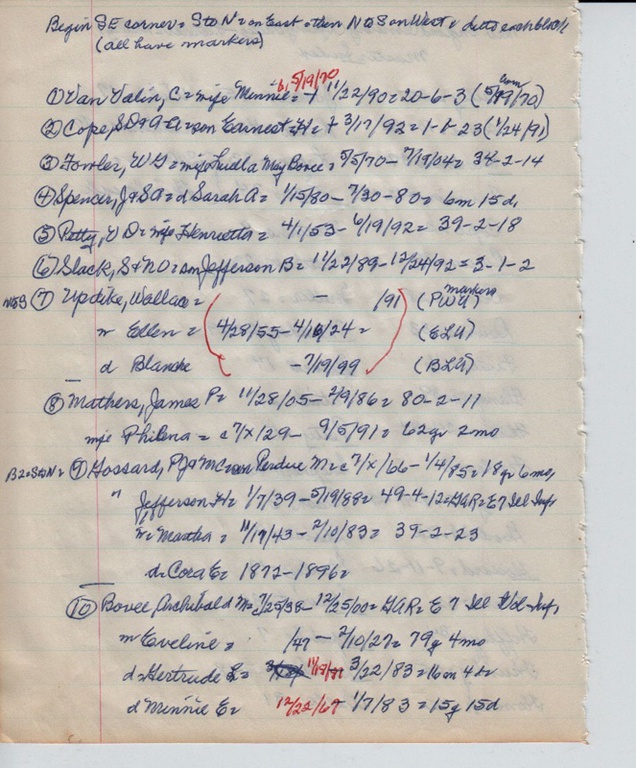 Begin SE corner = S to N = on East = then N to S on West = ditto each block
(all have markers)
b. 5/19/70
① Van Valin, C = wife Minnie = + 11/22/90 = 20-6-3 (5/19/70) com
② Cope, SD & A A = son Earnest H = + 3/17/92 = 1-1-23 (1/24/91)
③ Fowler, W G = wife Luella May Bovee = 5/5/70 - 7/19/04 = 34-2-14
④ Spencer, J & S A = d Sarah A = 1/15/80 - 7/30-80 = 6m 15d,
⑤ Petty, V D = wife Henrietta = 4/1/53 - 6/19/92 = 39-2-18
⑥ Slack, S & N D = son Jefferson B = 11/22/89 - 12/24/92 = 3-1-2
⑦ Updike, Wallace = - /91 (PWU) markers
w Ellen = 4/28/55 - 4/16/24 = (ELU)
d Blanche - 7/19/99 (BLU)
⑧ Mathers, James P = 11/28/05 - 2/9/86 = 80-2-11
wife Philena = c 7/x/29 - 9/5/91 = 62 yr 2 mo
B2 = S to N = ⑨ Gossard, PJ & MC = son Perdue M = c 7/x/66 - 1/4/85 = 18 yr 6 mo,
" Jefferson H = 1/7/39 - 5/19/88 = 49-4-12 = GAR = E 7 Ill Inf,
w = Martha = 11/17/43 - 2/10/83 = 39-2-23
d = Cora E = 1872 - 1896 =
⑩ Bovee, Archibald M = 7/25/38 - 12/25/00 = GAR = E 7 Ill Vol = Inf,
w Eveline = /47 - 2/10/27 = 79 y 4 mo
d = Gertrude L = 3/22/83 = 16m 4d
d Minnie E = 12/22/67 - 1/7/83 = 15 y 15 d